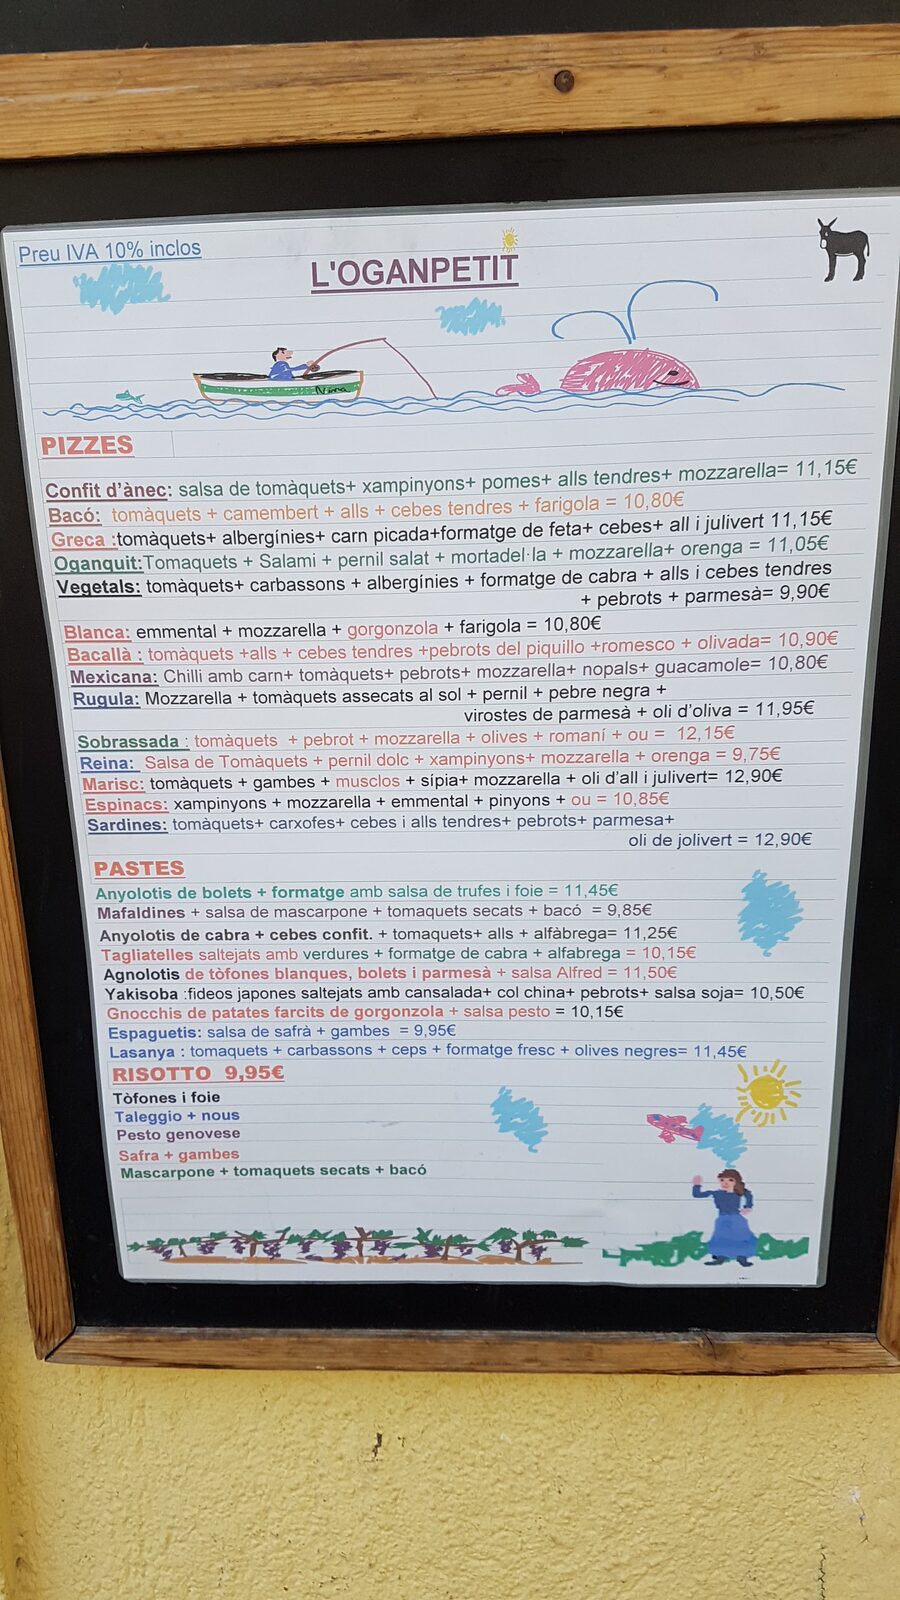 Preu IVA 10% inclos
L'OGANPETIT
Nina
PIZZES
Confit d'ànec: salsa de tomàquets+ xampinyons+ pomes+ alls tendres+ mozzarella= 11,15€
Bacó: tomàquets + camembert + alls + cebes tendres + farigola = 10,80€
Greca :tomàquets+ albergínies+ carn picada+formatge de feta+ cebes+ all i julivert 11,15€
Oganquit:Tomaquets + Salami + pernil salat + mortadel·la + mozzarella+ orenga = 11,05€
Vegetals: tomàquets+ carbassons + albergínies + formatge de cabra + alls i cebes tendres
+ pebrots + parmesà= 9,90€
Blanca: emmental + mozzarella + gorgonzola + farigola = 10,80€
Bacallà : tomàquets +alls + cebes tendres +pebrots del piquillo +romesco + olivada= 10,90€
Mexicana: Chilli amb carn+ tomàquets+ pebrots+ mozzarella+ nopals+ guacamole= 10,80€
Rugula: Mozzarella + tomàquets assecats al sol + pernil + pebre negra +
virostes de parmesà + oli d'oliva = 11,95€
Sobrassada : tomàquets + pebrot + mozzarella + olives + romaní + ou = 12,15€
Reina: Salsa de Tomàquets + pernil dolc + xampinyons+ mozzarella + orenga = 9,75€
Marisc: tomàquets + gambes + musclos + sípia+ mozzarella + oli d'all i julivert= 12,90€
Espinacs: xampinyons + mozzarella + emmental + pinyons + ou = 10,85€
Sardines: tomàquets+ carxofes+ cebes i alls tendres+ pebrots+ parmesa+
oli de jolivert = 12,90€
PASTES
Anyolotis de bolets + formatge amb salsa de trufes i foie = 11,45€
Mafaldines + salsa de mascarpone + tomaquets secats + bacó = 9,85€
Anyolotis de cabra + cebes confit. + tomaquets+ alls + alfàbrega= 11,25€
Tagliatelles saltejats amb verdures + formatge de cabra + alfabrega = 10,15€
Agnolotis de tòfones blanques, bolets i parmesà + salsa Alfred = 11,50€
Yakisoba :fideos japones saltejats amb cansalada+ col china+ pebrots+ salsa soja= 10,50€
Gnocchis de patates farcits de gorgonzola + salsa pesto = 10,15€
Espaguetis: salsa de safrà + gambes = 9,95€
Lasanya : tomaquets + carbassons + ceps + formatge fresc + olives negres= 11,45€
RISOTTO 9,95€
Tòfones i foie
Taleggio + nous
Pesto genovese
Safra + gambes
Mascarpone + tomaquets secats + bacó